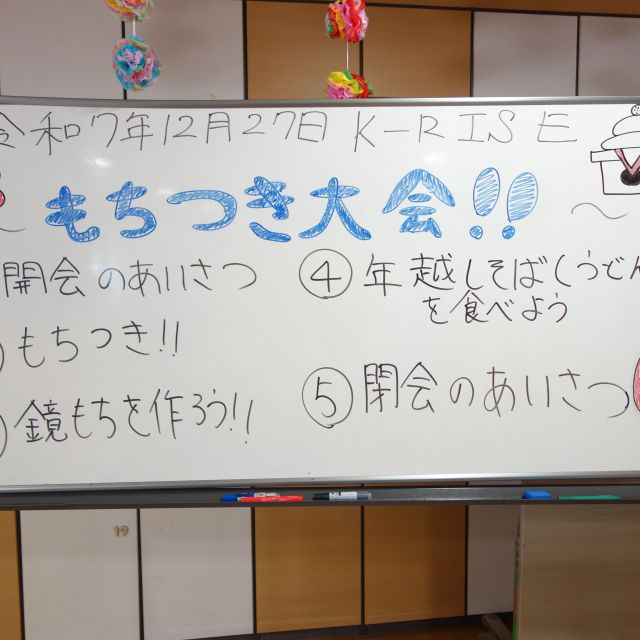 令和7年12月27日 K-RISE
もちつき大会!!
開会のあいさつ
もちつき!!
鏡もちを作ろう!!
④年越しそば(うどん
を食べよう
⑤閉会のあいさつ
19